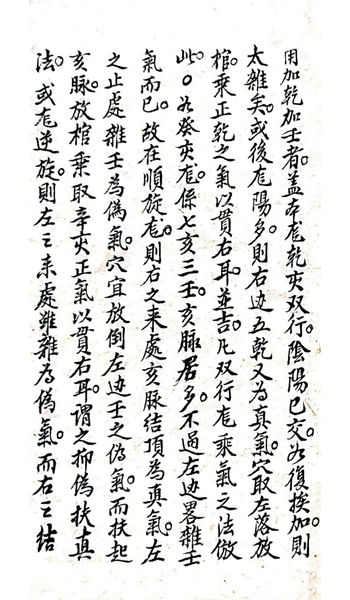 用加乾加壬者。盖本龙乾亥双行。陰陽已交。若復挨加。則
太雜矣。或後龙陽多。則右边五乾又為真氣。穴取左落放
棺。乘正乾之氣以貫右耳並吉。凡双行龙乘氣之法倣
此。○若癸亥龙。係七亥三壬。亥脉居多。不過左边畧雜壬
氣而已。故在順旋龙。則右之来處亥脉結頂為真氣。左
之止處雜壬為偽氣。穴宜放倒左边壬之偽氣。而扶起
亥脉。放棺乘取辛亥正氣以貫右耳。謂之抑偽扶真
法。或龙逆旋。則左之来處雖雜為偽氣。而右之結